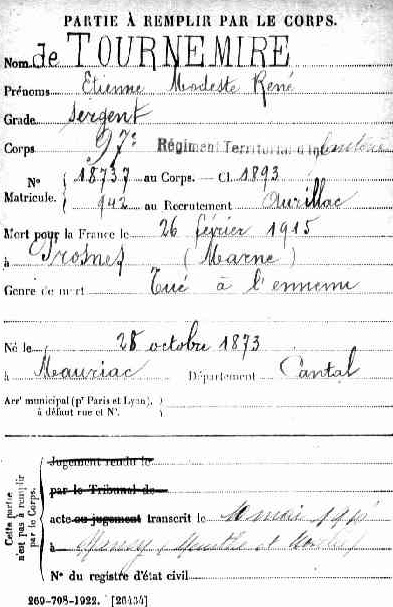 PARTIE À REMPLIR PAR LE CORPS.
Nom de TOURNEMIRE
Prénoms Etienne Modeste René
Grade Sergent
Corps 97e Régiment Territorial d'Infanterie
N° Matricule. { 18737 au Corps. — Cl. 1893
942 au Recrutement Aurillac
Mort pour la France le 26 février 1915
à Prosnes (Marne)
Genre de mort Tué à l'ennemi
Né le 28 octobre 1873
à Mauriac Département Cantal
Arrt municipal (pr Paris et Lyon), à défaut rue et N°. {
Cette partie n'est pas à remplir par le Corps.
Jugement rendu le
par le Tribunal de
acte ou jugement transcrit le 10 mai
à Nancy (Meurthe et Moselle)
N° du registre d'état civil
269-708-1922. [26434]